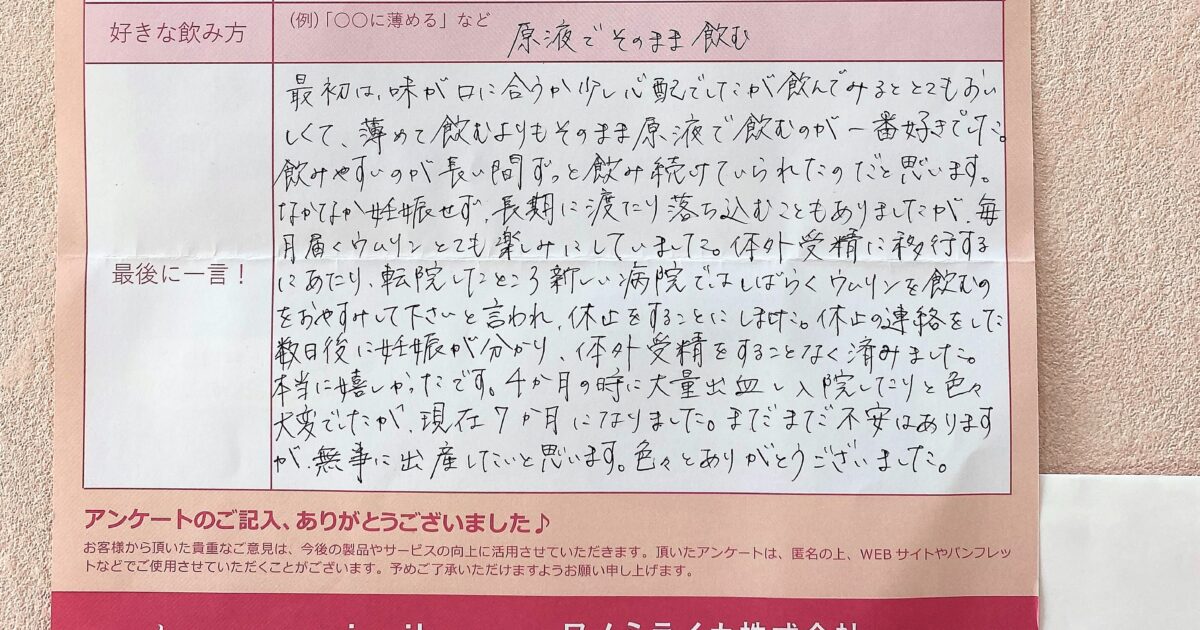 好きな飲み方
(例)「〇〇に薄める」など
原液でそのまま飲む
最後に一言！
最初は、味が口に合うか少し心配でしたが飲んでみるととてもおい
しくて、薄めて飲むよりもそのまま原液で飲むのが一番好きでした。
飲みやすいのが長い間ずっと飲み続けていられたのだと思います。
なかなか妊娠せず、長期に渡たり落ち込むこともありましたが、毎
月届くウムリンとても楽しみにしていました。体外受精に移行する
にあたり、転院したところ新しい病院ではしばらくウムリンを飲むの
をおやすみして下さいと言われ、休止をすることにしました。休止の連絡をした
数日後に妊娠が分かり、体外受精をすることなく済みました。
本当に嬉しかったです。4か月の時に大量出血し入院したりと色々
大変でしたが、現在7か月になりました。まだまだ不安はあります
が、無事に出産したいと思います。色々とありがとうございました。
アンケートのご記入、ありがとうございました♪
お客様から頂いた貴重なご意見は、今後の製品やサービスの向上に活用させていただきます。頂いたアンケートは、匿名の上、WEBサイトやパンフレッ
トなどでご使用させていただくことがございます。予めご了承いただけますようお願い申し上げます。